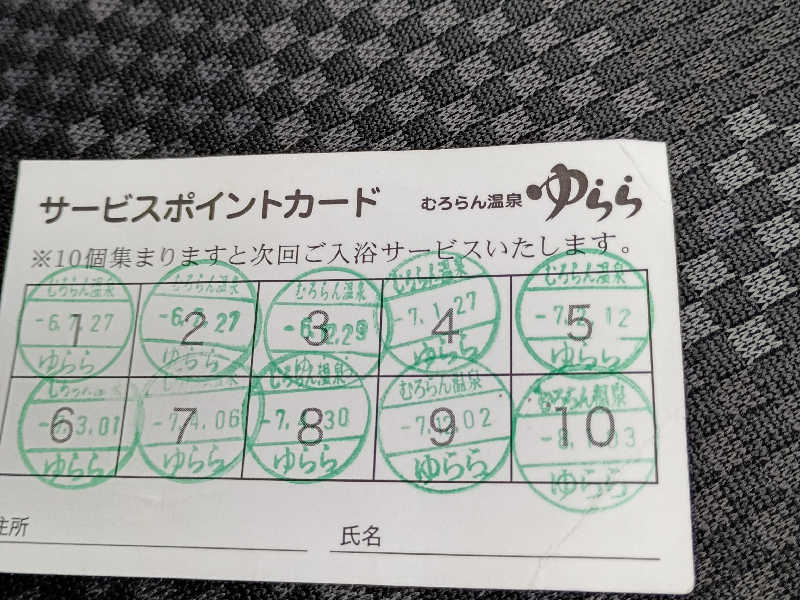 サービスポイントカード むろらん温泉 ゆらら
※10個集まりますと次回ご入浴サービスいたします。
むろらん温泉 むろらん温泉 むろらん温泉 むろらん温泉 むろらん温泉
1 2 3 4 5
-6.7.27 -7.1.27
ゆらら ゆらら ゆらら ゆらら
むろらん温泉 むろらん温泉 むろらん温泉
6 7 8 9 10
-7.4.06 -7.12.02
ゆらら ゆらら ゆらら ゆらら ゆらら
住所 氏名